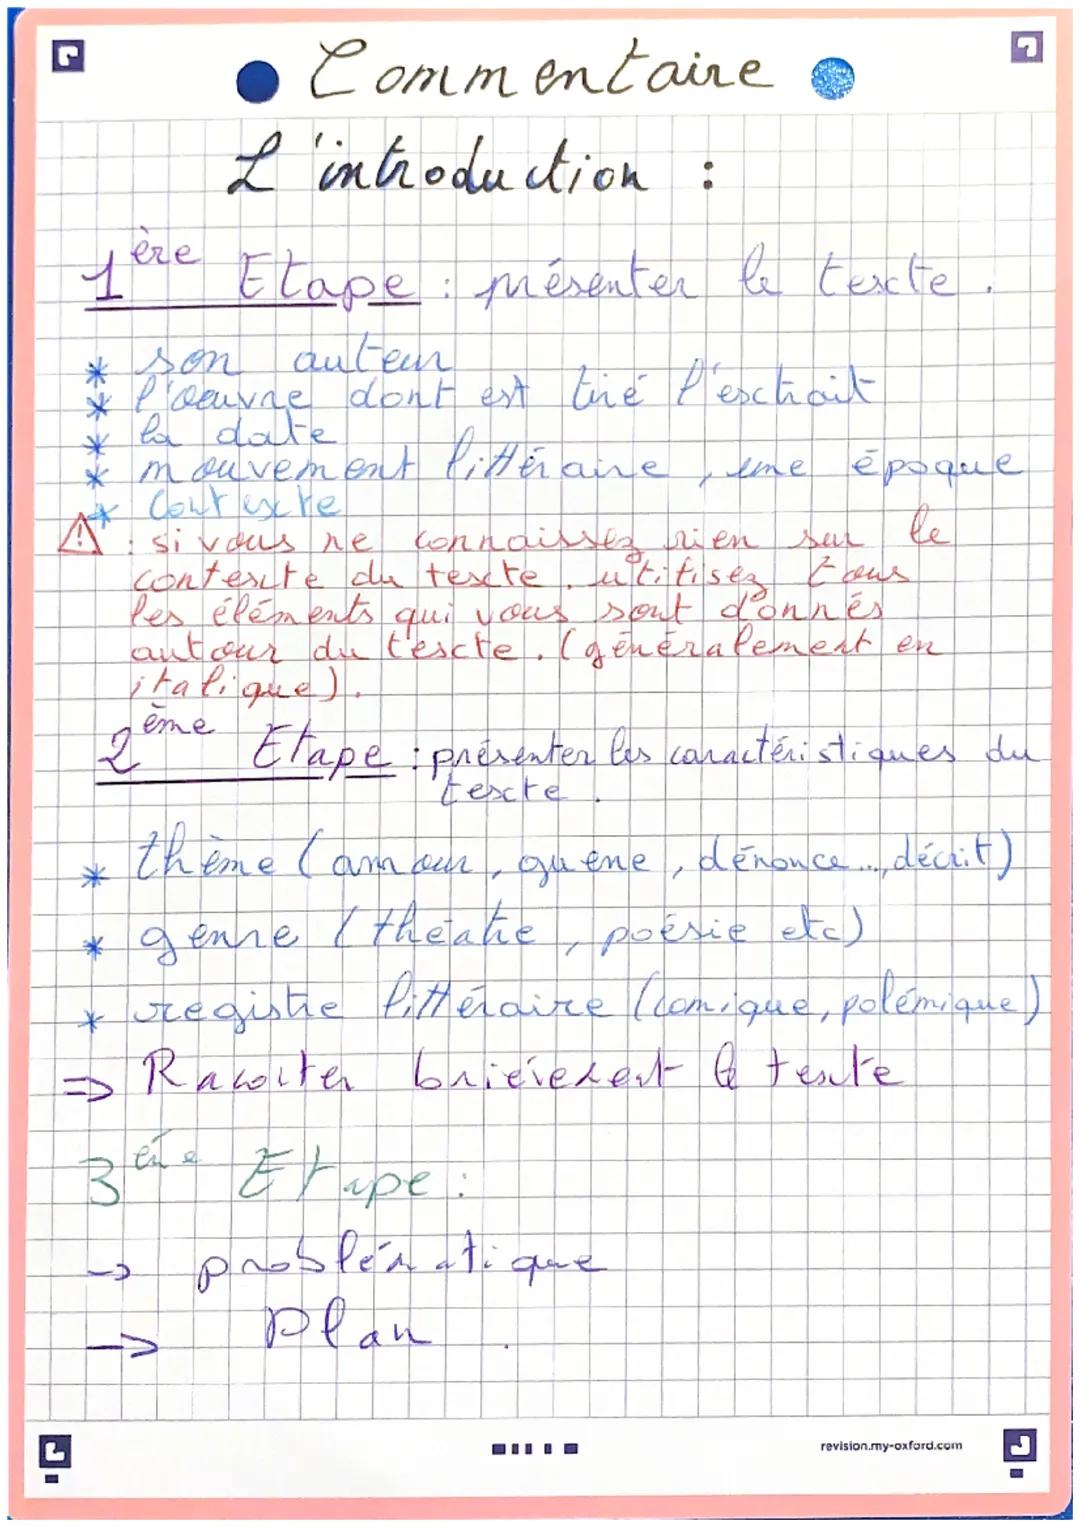 Commentaire
L'introduction :
1ère Etape : présenter le texte.
* son auteur
* l'œuvre dont est tiré l'extrait
* la date
* mouvement littéraire, une époque
* contexte
⚠ : si vous ne connaissez rien sur le
contexte du texte, utilisez tous
les éléments qui vous sont donnés
autour du texte. (généralement en
italique).
2ème Etape : présenter les caractéristiques du
texte.
* thème (amour, guerre, dénonce..., décrit)
* genre (théatre, poésie etc)
* registre littéraire (comique, polémique)
=> Raconter brièvement le texte
3ème Etape :
-> problématique
-> Plan.
revision.my-oxford.com